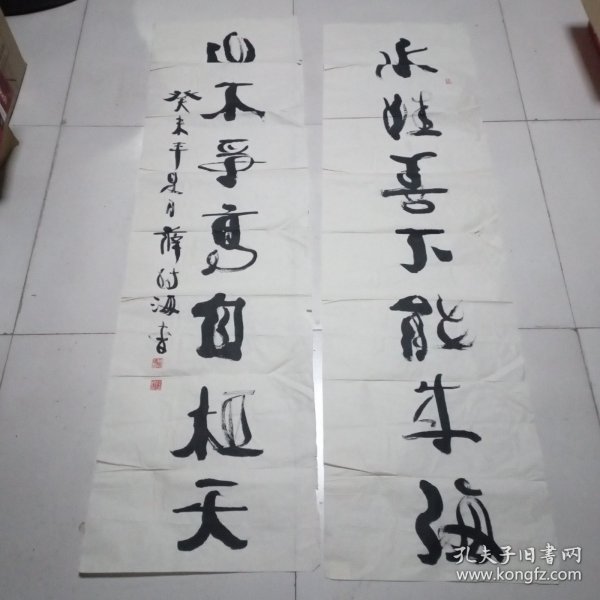 水唯善下能成海
山不争高自极天
癸未年是月薛时海书
孔夫子旧书网
www.kongfz.com